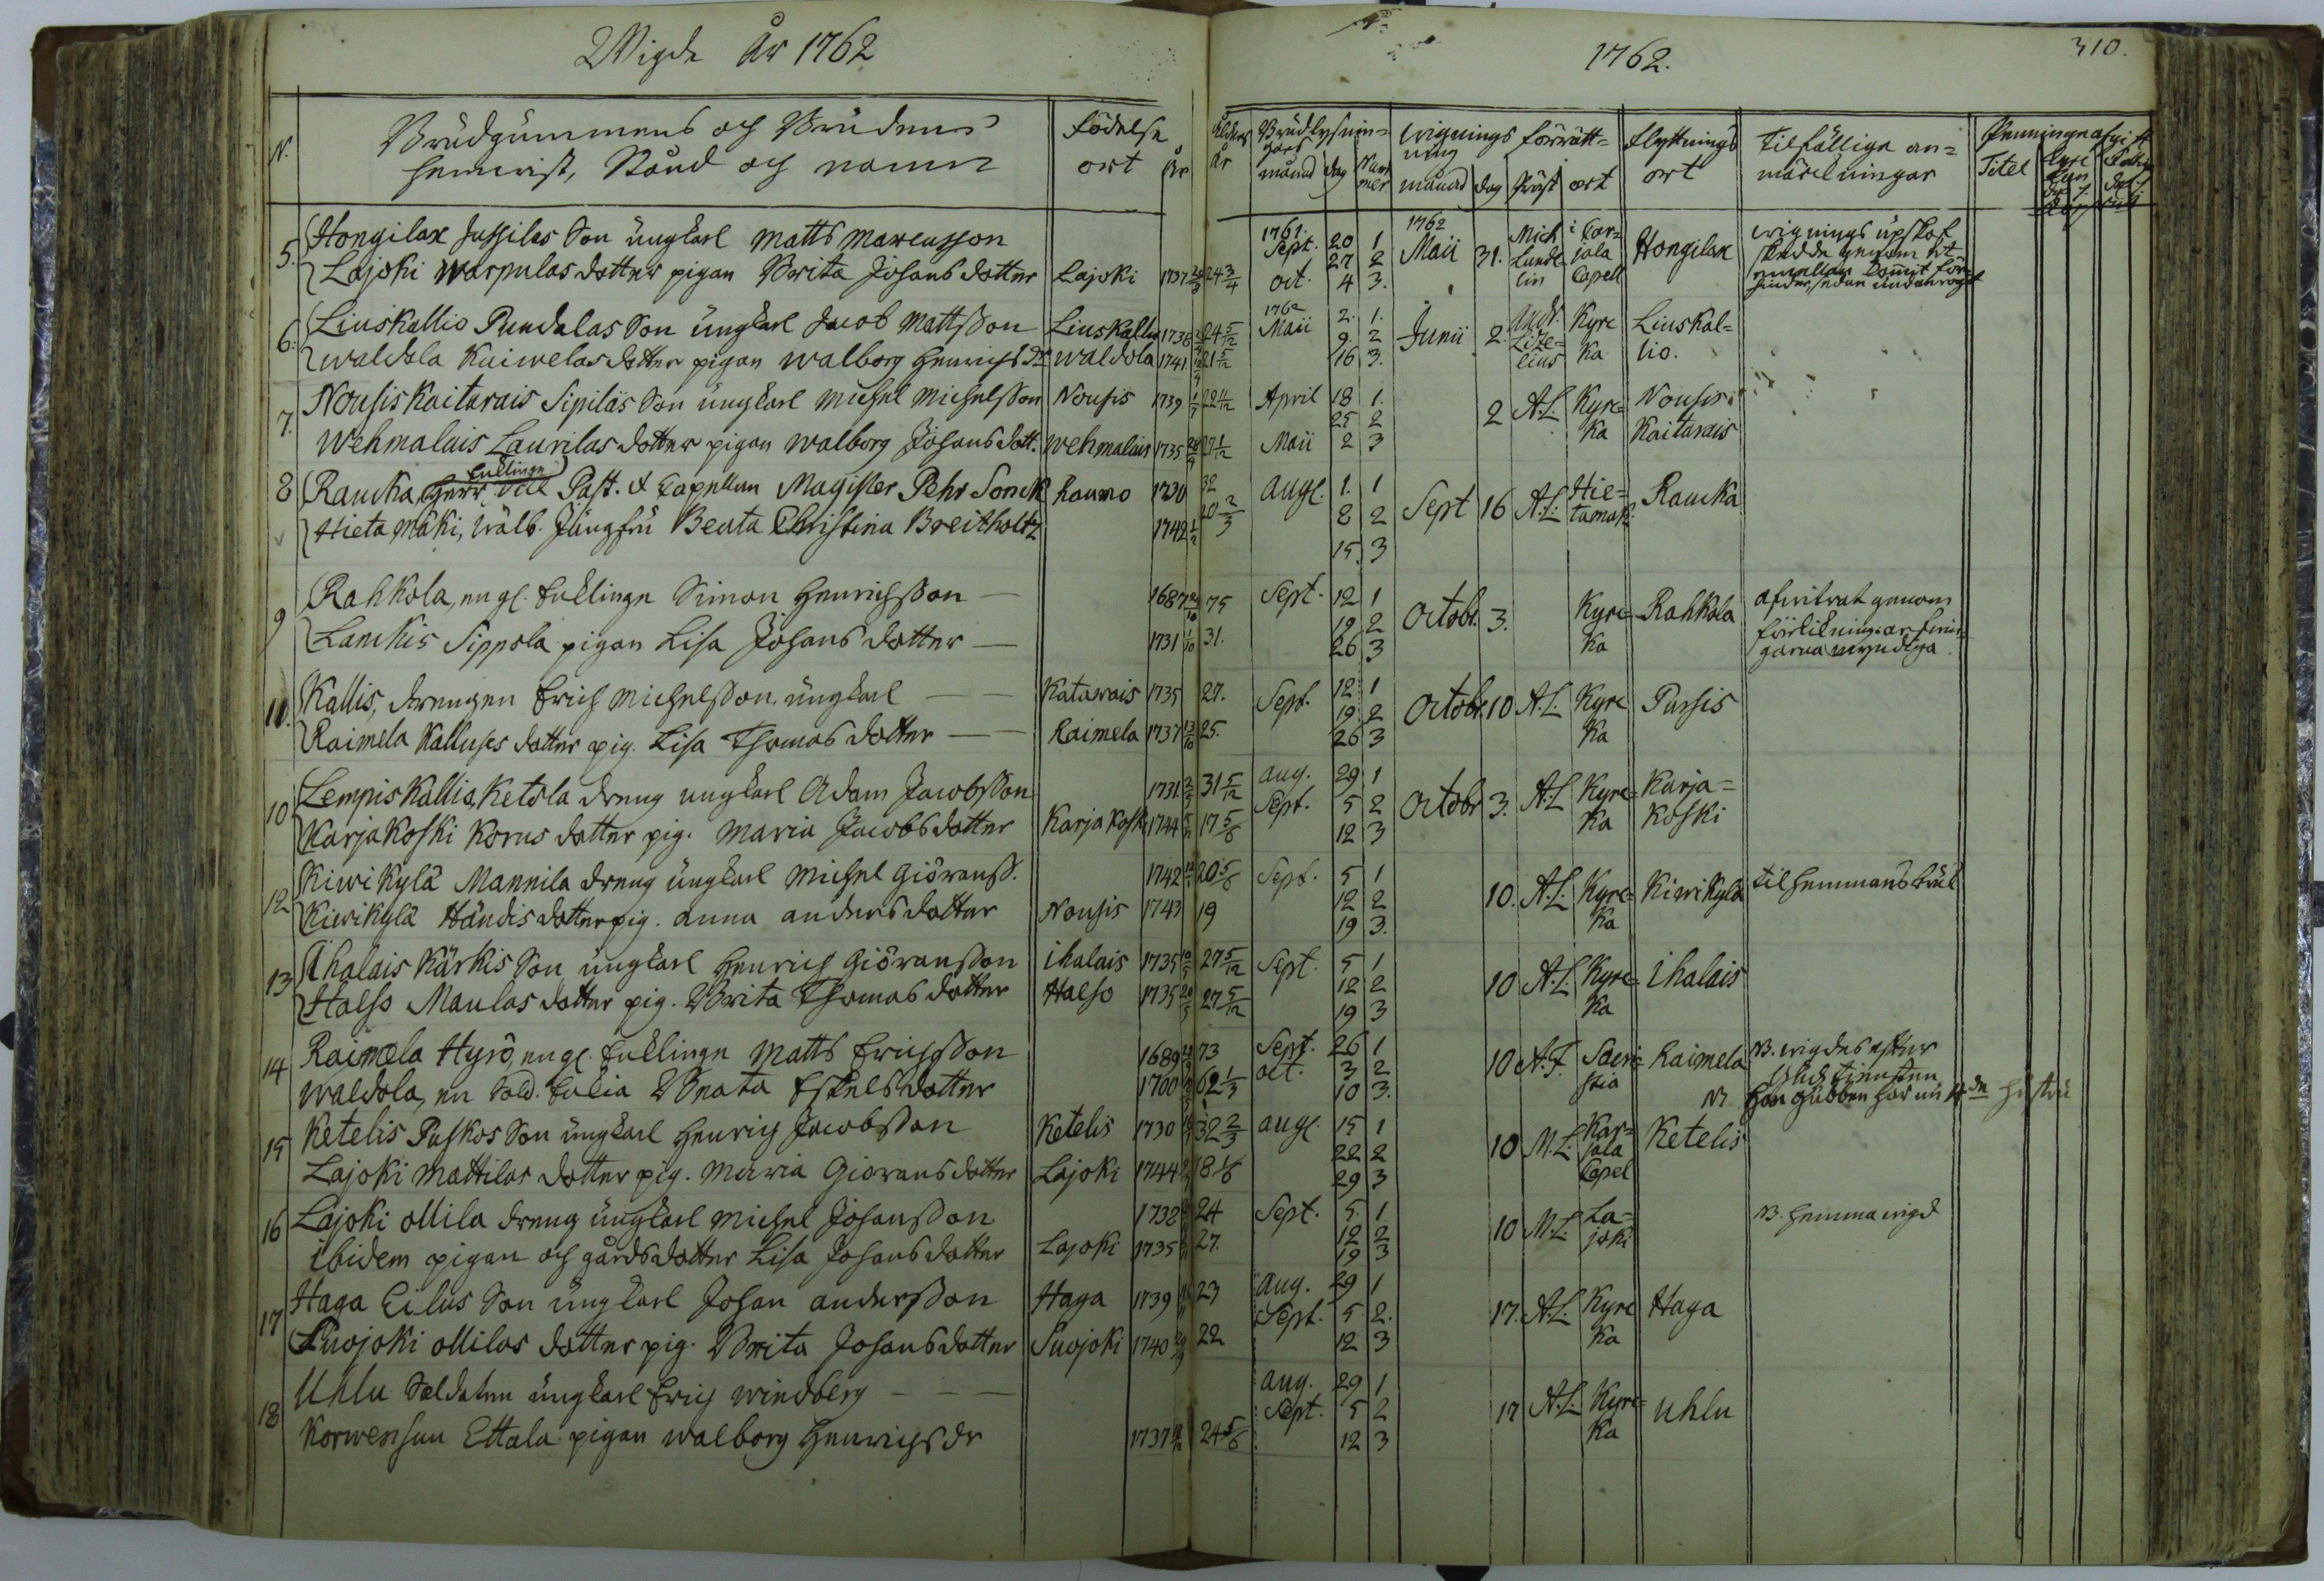 Wigde År 1762
1762.
310.
N. Brudgummens och Brudens hemvist, Stånd och namn
Födelse ort År
Ålders År
Brudlysningars månad dag Nummer
Wignings förrättning månad dag Präst ort
Flyttnings ort
Tilfällige anmärckningar
Penningeafgift
Titel
5. Hongilax Jussilas Son ungkarl Matts Marcusson 1761. Sept. 20 1 1762 Maii 31. Mich Lundelin i Carjala Capell Hongilax
27 2
Lajoki Warpulas dotter pigan Brita Johans dotter Lajoki 1737 24 3/4 oct. 4 3.
wignings upskof skedde genom
6. Liuskallio Pundalas Son ungkarl Jacob Mattsson Liuskallio 1738 24 5/12 1762 Maii 2. 1. Junii 2. Kyrcka Liuskallio.
9. 2
Waldola Kuiwelas dotter pigan Walborg Henrichs Dr Waldola 1741 21 5/12 16 3.
7. Nousis Kaitarais Sipiläs Son ungkarl Michel Michelsson Nousis 1739 22 11/12 April 18 1. 2 A.L. Kyrcka Nousis Kaitarais
25 2
Wehmalais Laurilas dotter pigan Walborg Johans dott. Wehmalais 1735 27 1/12 Maii 2 3
8 Raucka Enklinge Herr Vice Past. & Capellan Magister Pehr Sonck Raumo 1730 32 Aug. 1. 1 Sept 16 A.L. Hietamäki Raucka
8 2
Hieta Mäki, wälb. Jungfru Beata Christina Breitholtz 1742 20 2/3 15. 3
9 Rahkola, engl. Enklinge Simon Henrichsson — 1687 75 Sept. 12 1 Octobr. 3. Kyrcka Rahkola
19 2
Lauckis Sippola pigan Lisa Johans dotter — 1731 31. 26 3
11. Kallis, drengen Erich Michelsson, ungkarl — — Katawais 1735 27. Sept. 12 1 Octobr. 10 A.L. Kyrcka Pursis
19 2
Raimela Kalluses dotter pig. Lisa Thomas dotter — Raimela 1737 25. 26 3
10 Lempis Kallis, Ketola dreng ungkarl Adam Jacobsson 1731 31 5/12 Aug. 29 1 Octobr 3. A.L. Kyrcka Karjakoski
Sept. 5 2
Karjakoski Korus dotter pig. Maria Jacobs dotter Karjakoski 1744 17 5/6 12 3
12 Kiwikylä Mannila dreng ungkarl Michel Giöranss. 1742 20 5/6 Sept. 5 1 10. A.L. Kyrcka Kiwikylä til hemmansbruk
12 2
Kiwikylä Händis dotter pig. Anna Anders dotter Nousis 1743 19 19 3.
13 Ihalais Kärkis Son ungkarl Henrich Giöransson Ihalais 1735 27 5/12 Sept. 5 1 10 A.L. Kyrcka Ihalais
12 2
Halso Maulas dotter pig. Brita Thomas dotter Halso 1735 27 5/12 19 3
14 Raimela Hyrö, engl. Enklinge Matts Erichsson 1689 73 Sept. 26 1 10 A.F. Sacristia Raimela NB. wigdes efter
oct. 3 2
Waldola, en Sold. Enkia Beata Eskels dotter 1700 62 1/3 10 3. NB Han gubben har nu 4de hustru
15 Ketelis Puskos Son ungkarl Henrich Jacobsson Ketelis 1730 32 2/3 Aug. 15 1 10 M.L. Karjala Capel Ketelis
22 2
Lajoki Mattilas dotter pig. Maria Giorans dotter Lajoki 1744 18 1/6 29 3
16 Lajoki Ollila dreng ungkarl Michel Johansson 1738 24 Sept. 5. 1 10 M.L. Lajoki NB. hemma wigd
12 2
ibidem pigan och gårdsdotter Lisa Johans dotter Lajoki 1735 27. 19 3
17 Haga Eilus Son ungkarl Johan Andersson Haga 1739 23 Aug. 29 1 17. A.L. Kyrcka Haga
Sept. 5. 2.
Suojoki Ollilas dotter pig. Brita Johans dotter Suojoki 1740 22 12 3
18 Uhlu Soldaten ungkarl Erich Windberg — — — Aug. 29 1 17 A.L. Kyrcka Uhlu
Sept. 5 2
Korwensuu Ettala pigan Walborg Henrichs dr 1737 24 5/6 12 3